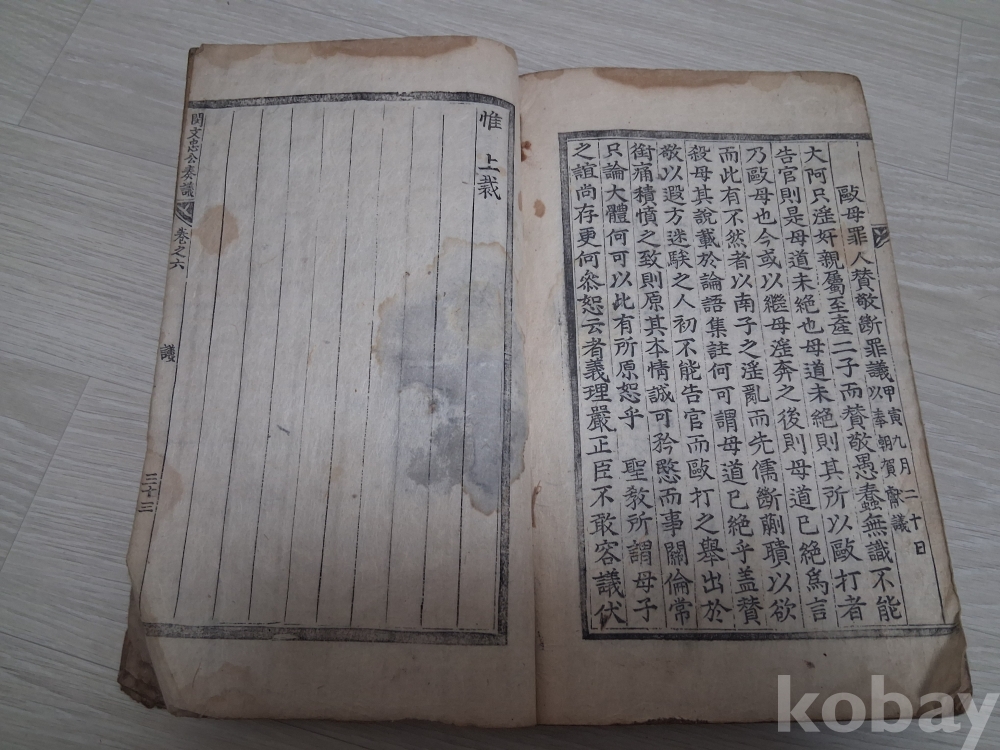 敺母罪人贊敬斷罪議 甲寅九月二十日
以奉朝賀獻議
大阿只淫奸親屬至產二子而贊敬愚蠢無識不能
告官則是母道未絶也母道未絶則其所以敺打者
乃敺母也今或以繼母淫奔之後則母道已絶爲言
而此有不然者以南子之淫亂而先儒斷蒯聵以欲
殺母其說載於論語集註何可謂母道已絶乎盖贊
敬以遐方迷騃之人初不能告官而敺打之舉出於
銜痛積憤之致則原其本情誠可矜愍而事關倫常
只論大體何可以此有所原恕乎 聖敎所謂母子
之誼尚存更何叅恕云者義理嚴正臣不敢容議伏
惟 上裁
閔文忠公奏議 卷之六 議 三十三
kobay